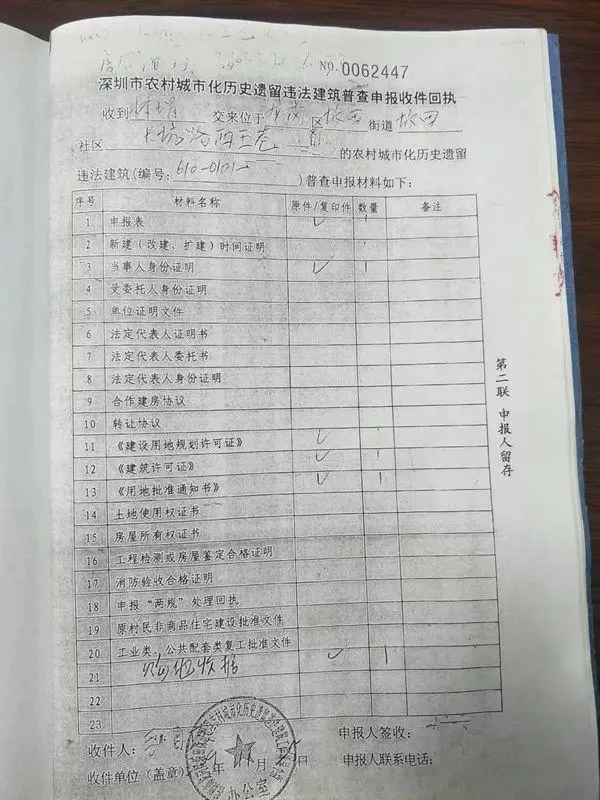 NO.0062447
深圳市农村城市化历史遗留违法建筑普查申报收件回执
收到 交来位于 区 坂田 街道 坂田
社区 的农村城市化历史遗留
违法建筑(编号: 610-0101- )普查申报材料如下:
序号 材料名称 原件/复印件 数量 备注
1 申报表 ✓ 1
2 新建(改建、扩建)时间证明
3 当事人身份证明 ✓ 1
4 受委托人身份证明
5 单位证明文件
6 法定代表人证明书
7 法定代表人委托书
8 法定代表人身份证明
9 合作建房协议
10 转让协议
11 《建设用地规划许可证》 ✓ 1
12 《建筑许可证》 ✓ 1
13 《用地批准通知书》 ✓ 1
14 土地使用权证书
15 房屋所有权证书
16 工程检测或房屋鉴定合格证明
17 消防验收合格证明
18 申报“两规”处理回执
19 原村民非商品住宅建设批准文件
20 工业类、公共配套类复工批准文件
21 收据 ✓ 1
22
23
收件人: 申报人签收:
收件单位(盖章) 年 月 日 申报人联系电话:
办公室
第二联 申报人留存